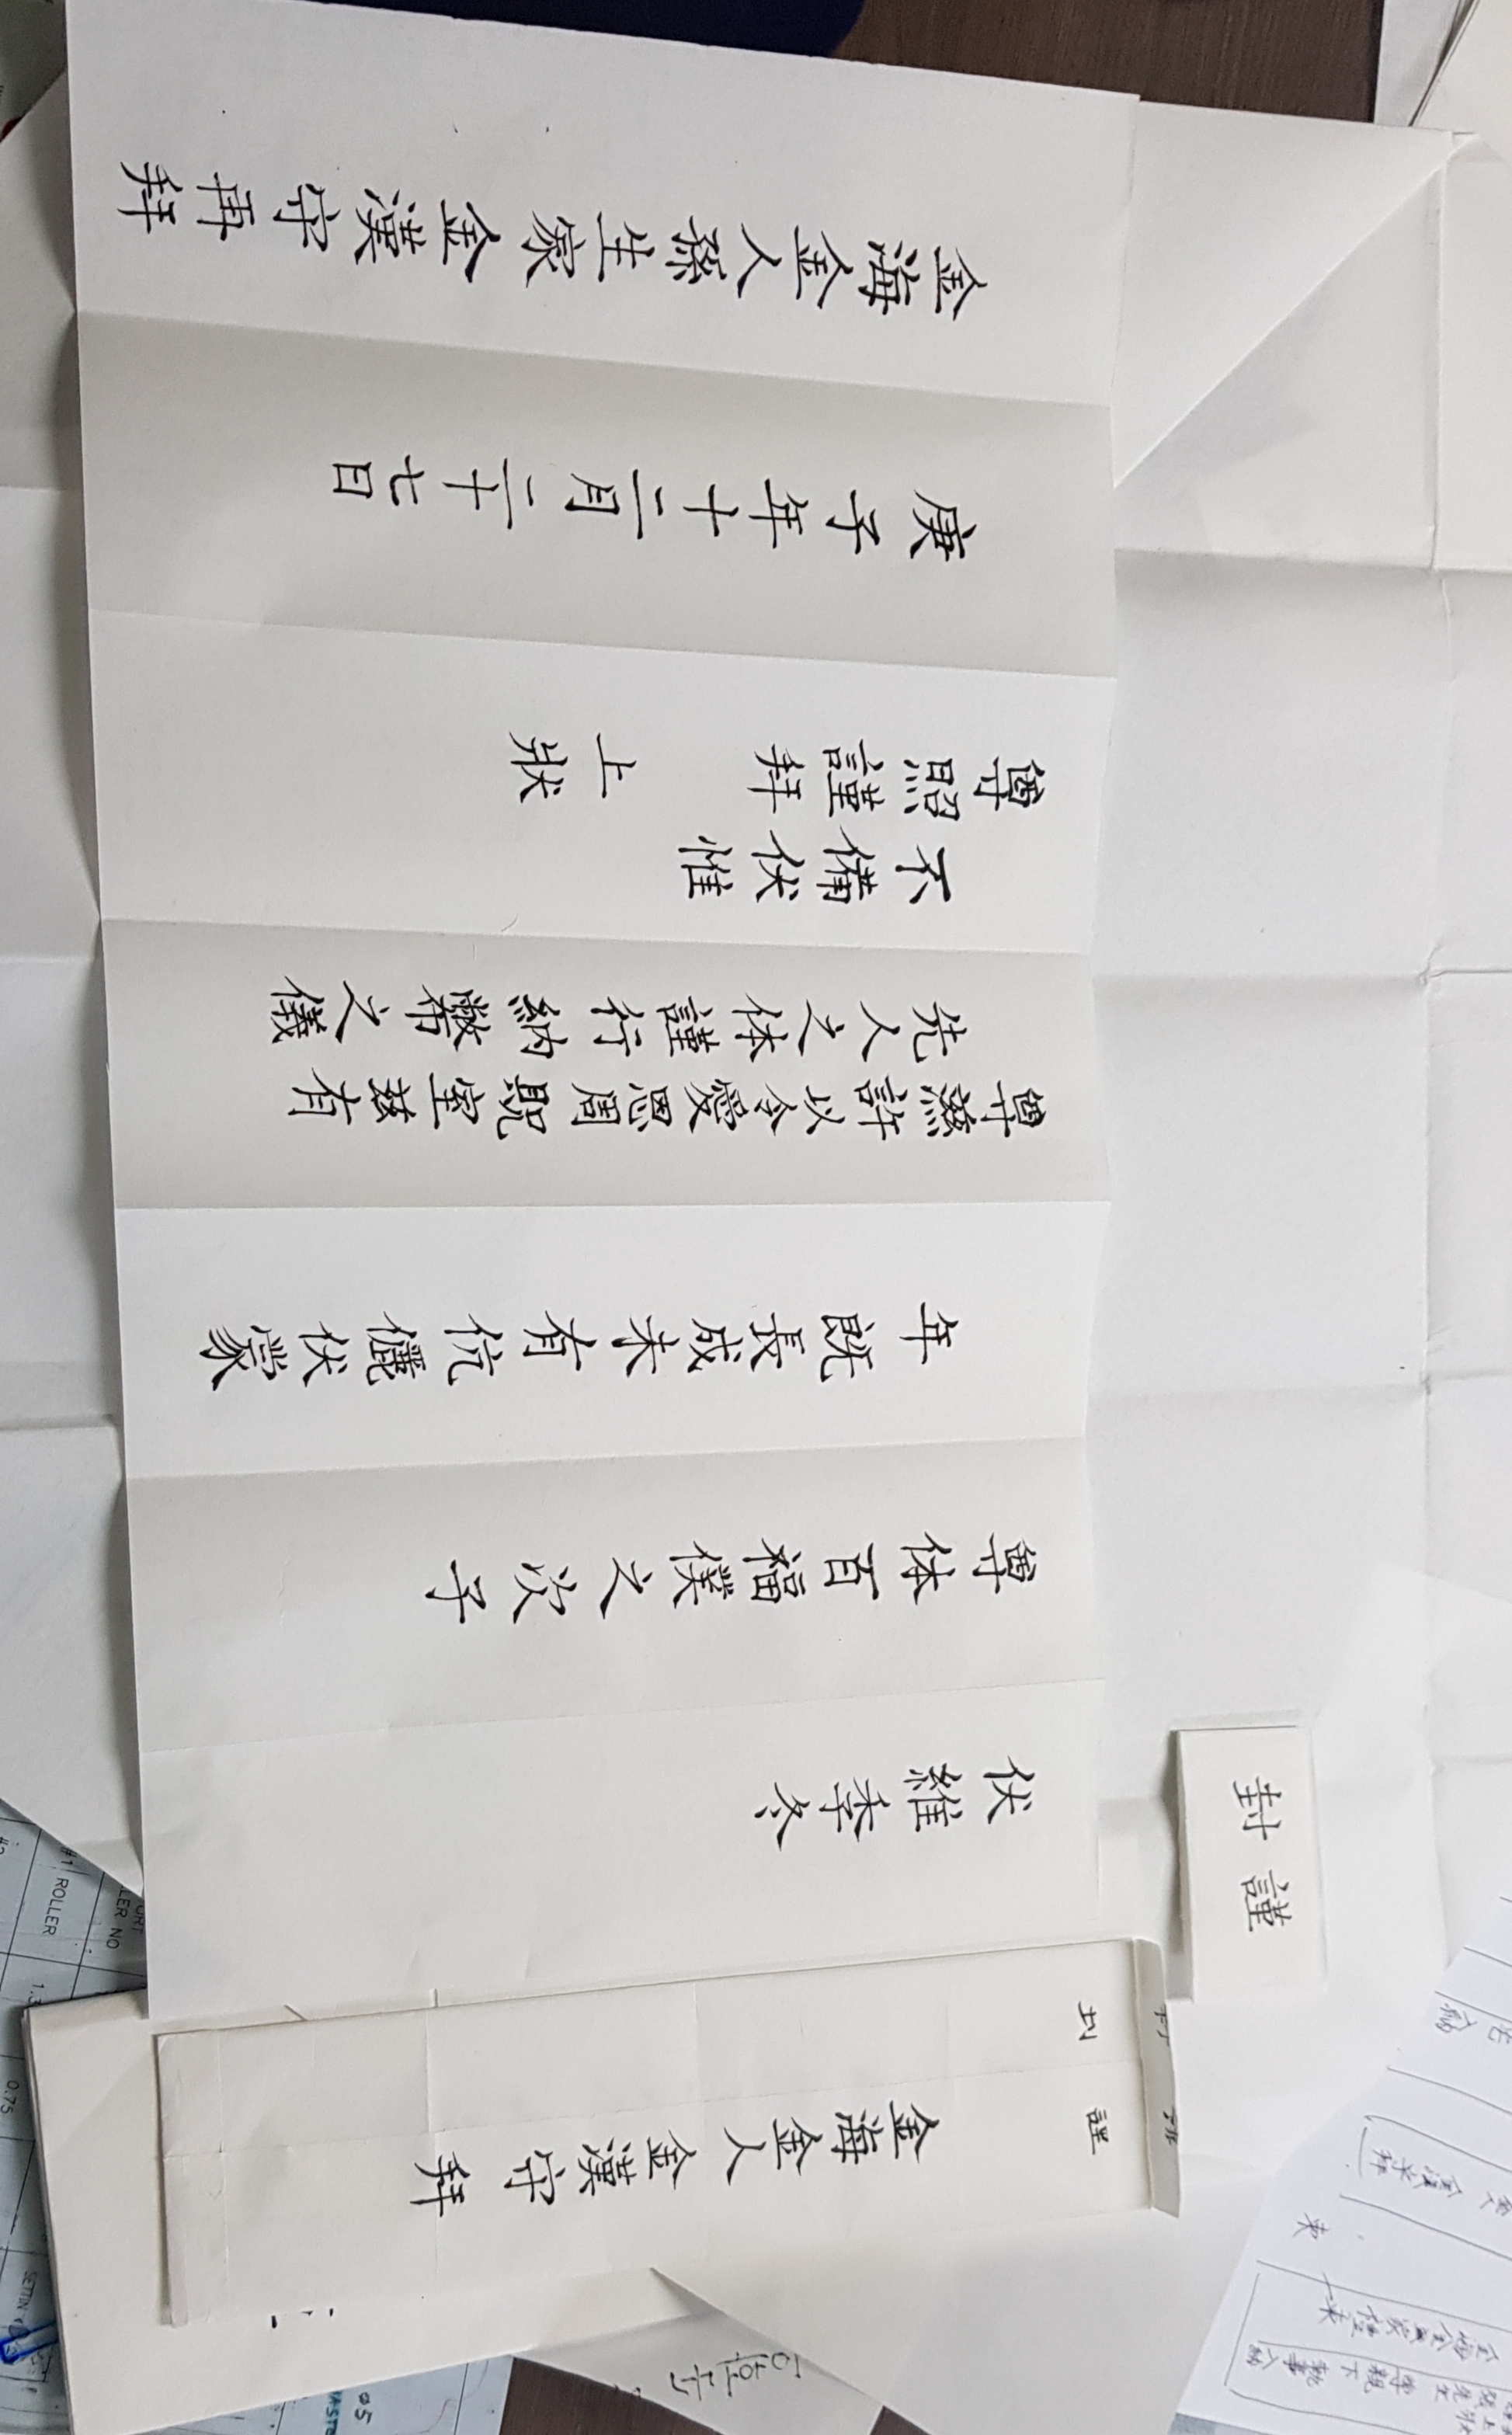 伏維季冬
尊体百福僕之次子
年旣長成未有伉儷伏蒙
尊慈許以令愛恩周貺室玆有
先人之体謹行納幣之儀
不備伏惟
尊照謹拜 上狀
庚子年十二月二十七日
金海金人孫生家金漢守再拜
謹封
金海金人金漢守拜
謹
#1 ROLLER
0.75